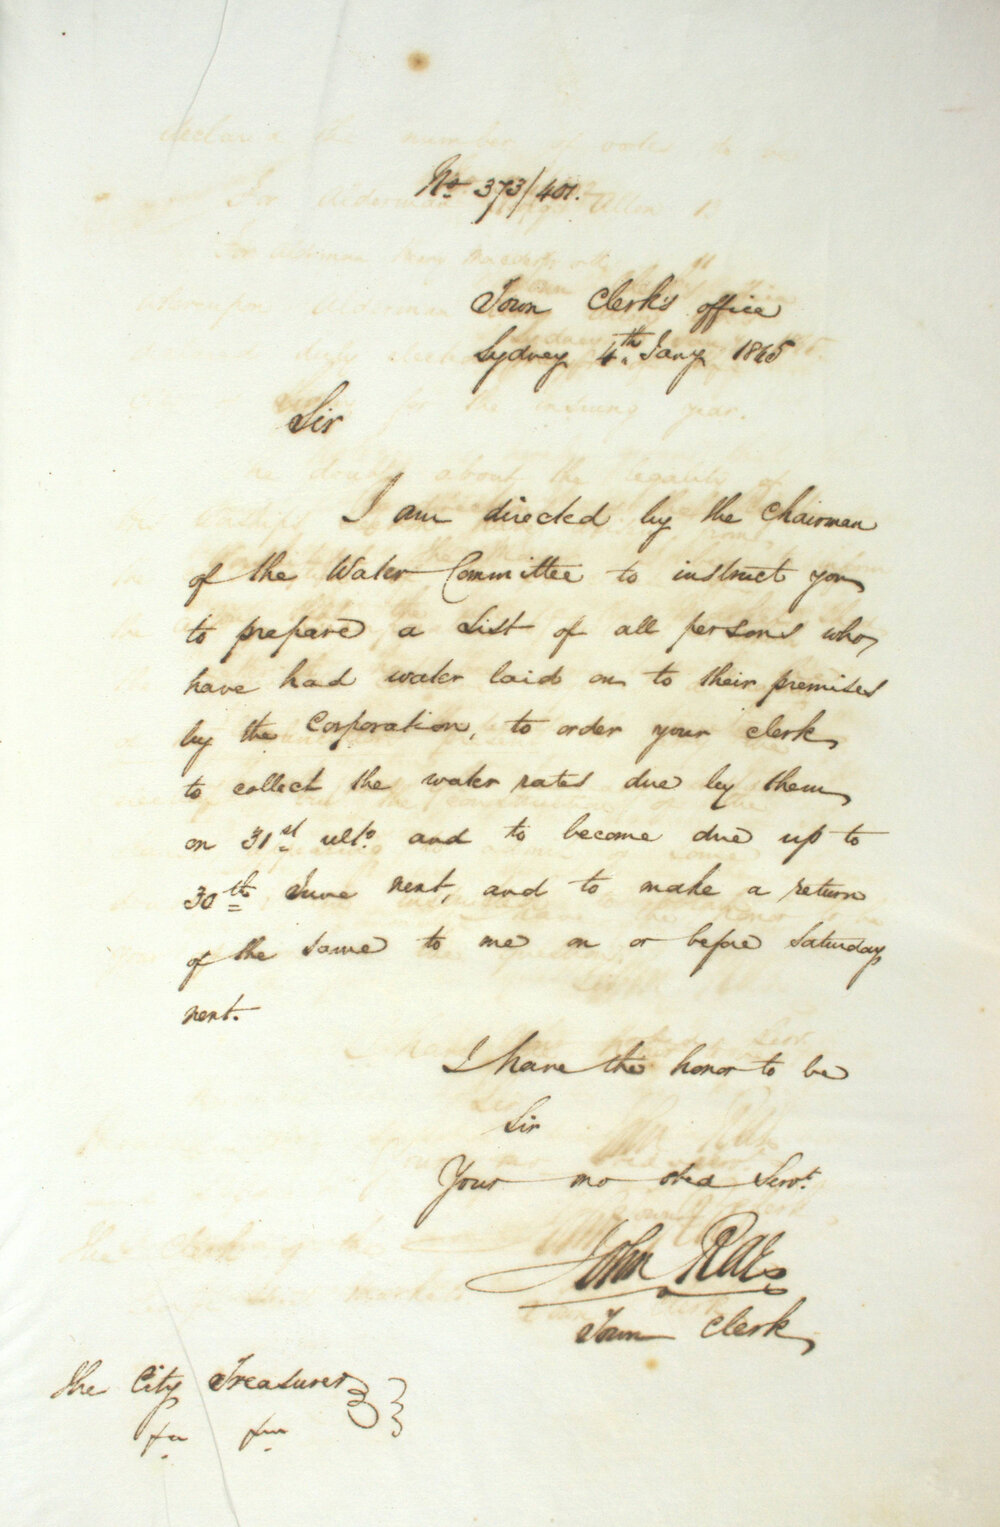 No. 373/401.
Town Clerk's office
Sydney 4th Jany 1845
Sir
I am directed by the Chairman
of the Water Committee to instruct you
to prepare a List of all persons who
have had water laid on to their premises
by the Corporation, to order your clerk
to collect the water rates due by them
on 31st ulto. and to become due up to
30th June next, and to make a return
of the same to me on or before Saturday
next.
I have the honor to be
Sir
Your mo obed Servt.
John Rae
Town Clerk
The City Treasurer